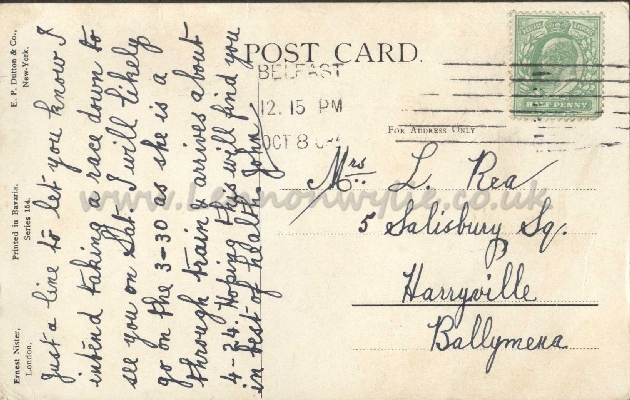 POST CARD.
BELFAST
12. 15 PM
OCT 8
HALF PENNY
FOR ADDRESS ONLY
Mrs L. Rea
5 Salisbury Sq.
Harryville
Ballymena
Just a line to let you know I
intend taking a race down to
see you on Sat. I will likely
go on the 3-30 as she is a
through train & arrives about
4-24. Hoping this will find you
in best of health. John
E. P. Dutton & Co.,
New-York.
Printed in Bavaria.
Series 164.
Ernest Nister,
London.
www.Lennonwylie.co.uk